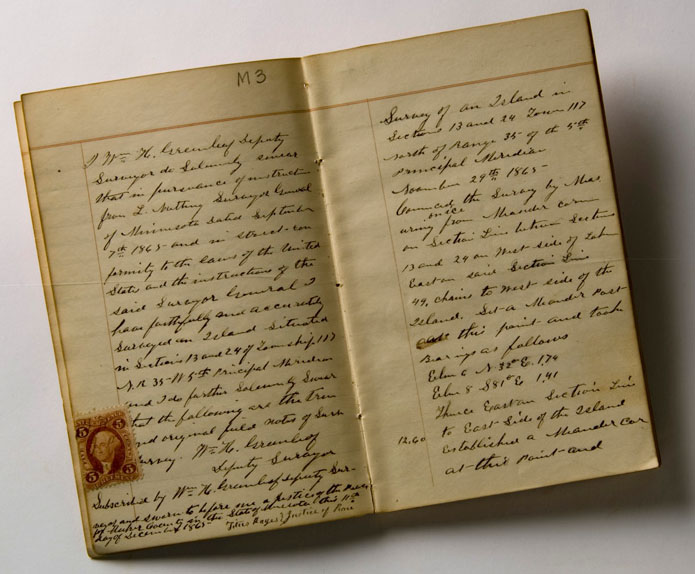 M3
I Wm H. Greenleaf Deputy
Surveyor do Solemnly swear
that in pursuance of instruction
from L. Nutting Surveyor General
of Minnesota dated September
7th 1865 and in strict con
formity to the laws of the United
States and the instructions of the
said Surveyor General I
have faithfully and accurately
Surveyed an Island Situated
in Sections 13 and 24 of Township 117
N.R. 35 W 5th Principal Meridian
and I do further Solemnly Swear
that the following are the true
and original field notes of Said
Survey. Wm H. Greenleaf
Deputy Surveyor
Subscribed by Wm H. Greenleaf Deputy Sur-
veyor and sworn to before me a Justice of the Peace
for Meeker County in the State of Minnesota this 11th
day of December 1865
Justice of Peace
5 5
5 5
Survey of an Island in
Sections 13 and 24 Town 117
north of Range 35 of the 5th
Principal Meridian
November 29th 1865
Commenced the Survey by Meas
on Section Line between Sections
13 and 24 on West side of Lake
East on said Section Line
49, chains to West side of the
Island. Set a Meander Post
at this point and took
Bearings as follows
Elm 6 N 32° E 1,74
Elm 8 S 81° E 1,41
Thence East on Section Line
12,60 to East Side of the Island
Established a Meander Cor
at this Point and